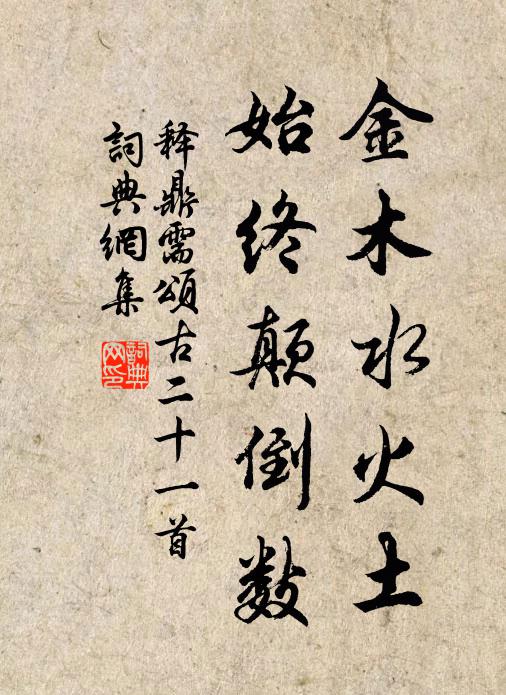 金木水火土
始终颠倒数
释鼎需颂古二十一首
词典網集
詞典网印